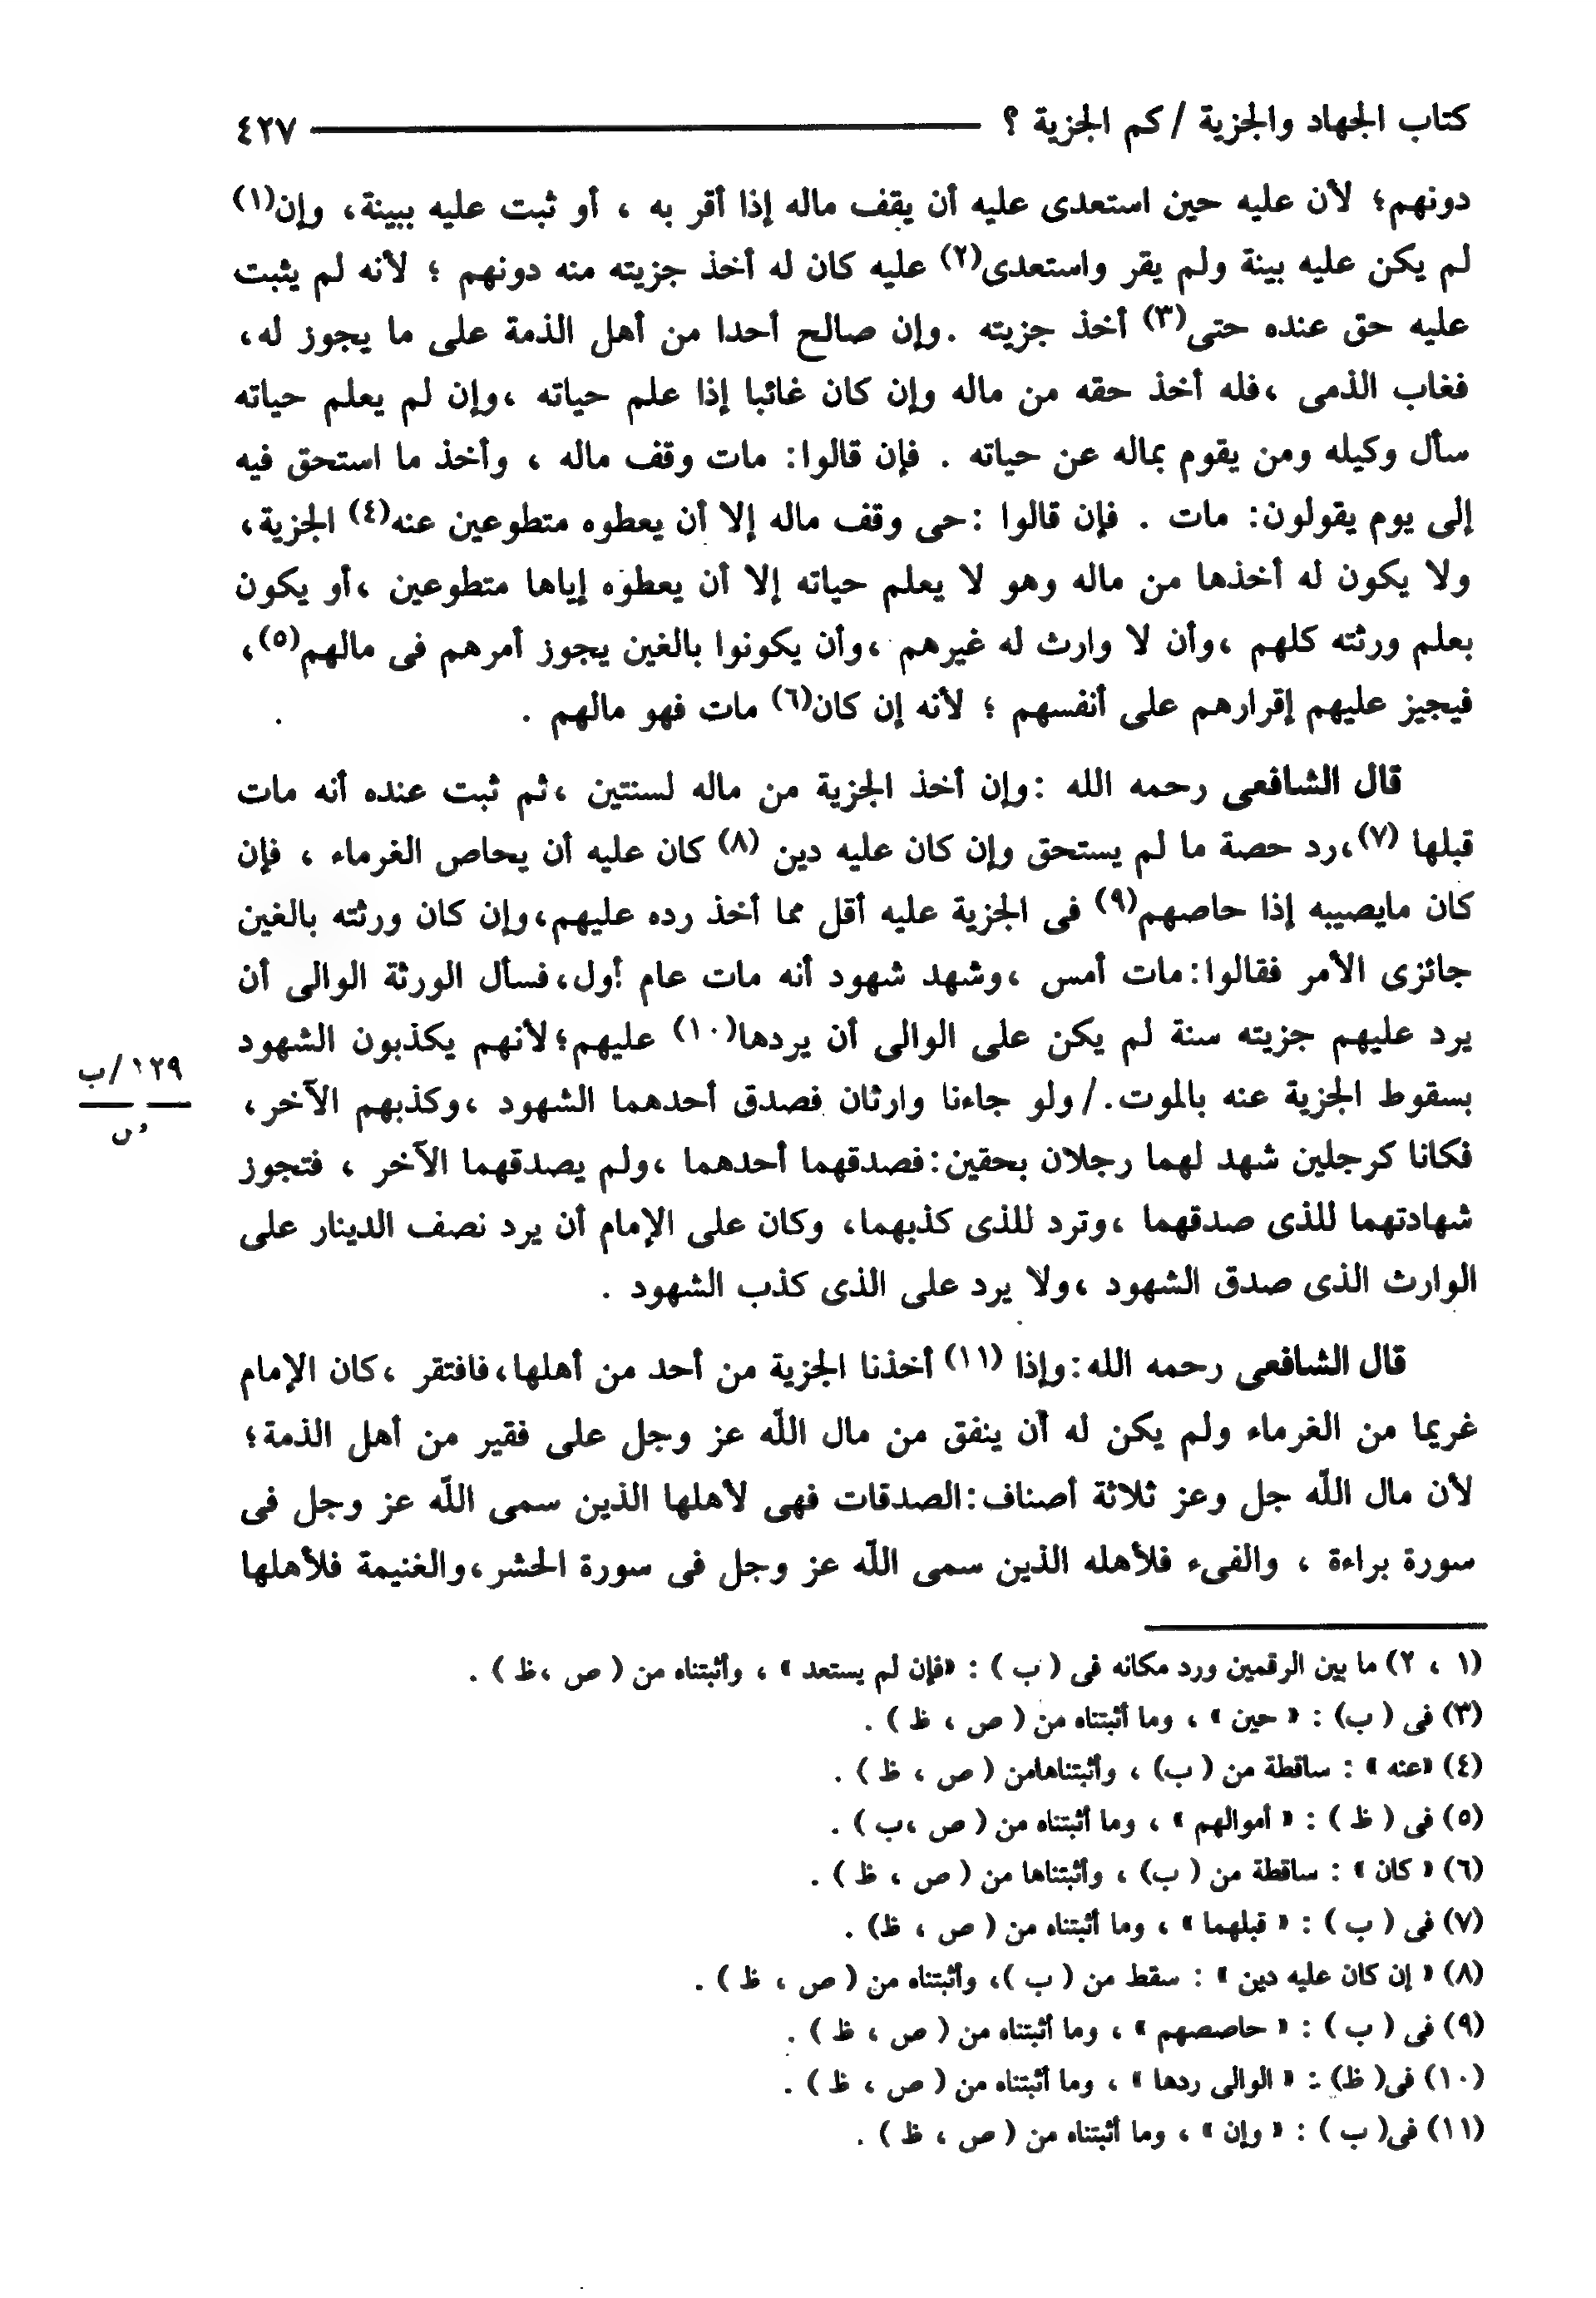 كتاب الجهاد والجزية / كم الجزية ؟ ٤٢٧
دونهم؛ لأن عليه حين استعدى عليه أن يقف ماله إذا أقر به ، أو ثبت عليه ببينة، وإن(١)
لم يكن عليه بينة ولم يقر واستعدى(٢) عليه كان له أخذ جزيته منه دونهم ؛ لأنه لم يثبت
عليه حق عنده حتى(٣) أخذ جزيته .وإن صالح أحدا من أهل الذمة على ما يجوز له،
فغاب الذمى ،فله أخذ حقه من ماله وإن كان غائبا إذا علم حياته ،وإن لم يعلم حياته
سأل وكيله ومن يقوم بماله عن حياته . فإن قالوا: مات وقف ماله ، وأخذ ما استحق فيه
إلى يوم يقولون: مات . فإن قالوا :حى وقف ماله إلا أن يعطوه متطوعين عنه(٤) الجزية،
ولا يكون له أخذها من ماله وهو لا يعلم حياته إلا أن يعطوه إياها متطوعين ،أو يكون
بعلم ورثته كلهم ،وأن لا وارث له غيرهم ،وأن يكونوا بالغين يجوز أمرهم فى مالهم(٥)،
فيجيز عليهم إقرارهم على أنفسهم ؛ لأنه إن كان(٦) مات فهو مالهم .
قال الشافعى رحمه الله :وإن أخذ الجزية من ماله لسنتين ،ثم ثبت عنده أنه مات
قبلها (٧)،رد حصة ما لم يستحق وإن كان عليه دين (٨) كان عليه أن يحاص الغرماء ، فإن
كان مايصيبه إذا حاصهم(٩) فى الجزية عليه أقل مما أخذ رده عليهم،وإن كان ورثته بالغين
جائزى الأمر فقالوا:مات أمس ،وشهد شهود أنه مات عام أول،فسأل الورثة الوالى أن
يرد عليهم جزيته سنة لم يكن على الوالى أن يردها(١٠) عليهم؛لأنهم يكذبون الشهود
بسقوط الجزية عنه بالموت./ ولو جاءنا وارثان فصدق أحدهما الشهود ،وكذبهم الآخر،
١٢٩ /ب
ص
فكانا كرجلين شهد لهما رجلان بحقين:فصدقهما أحدهما ،ولم يصدقهما الآخر ، فتجوز
شهادتهما للذى صدقهما ،وترد للذى كذبهما، وكان على الإمام أن يرد نصف الدينار على
الوارث الذى صدق الشهود ،ولا يرد على الذى كذب الشهود .
قال الشافعى رحمه الله:وإذا (١١) أخذنا الجزية من أحد من أهلها،فافتقر ،كان الإمام
غريما من الغرماء ولم يكن له أن ينفق من مال اللّه عز وجل على فقير من أهل الذمة؛
لأن مال اللّه جل وعز ثلاثة أصناف:الصدقات فهى لأهلها الذين سمى اللّه عز وجل فى
سورة براءة ، والفىء فلأهله الذين سمى اللّه عز وجل فى سورة الحشر،والغنيمة فلأهلها
(١ ، ٢) ما بين الرقمين ورد مكانه فى ( ب ) : «فإن لم يستعد » ، وأثبتناه من ( ص ،ظ ) .
(٣) فى ( ب) : « حين » ، وما أثبتناه من ( ص ، ظ ) .
(٤) «عنه » : ساقطة من ( ب) ، وأثبتناهامن ( ص ، ظ ) .
(٥) فى ( ظ ) : « أموالهم » ، وما أثبتناه من ( ص ،ب ) .
(٦) « كان » : ساقطة من ( ب) ، وأثبتناها من ( ص ، ظ ) .
(٧) فى ( ب ) : « قبلهما » ، وما أثبتناه من ( ص ، ظ) .
(٨) « إن كان عليه دين » : سقط من ( ب )، وأثبتناه من ( ص ، ظ ) .
(٩) فى ( ب ) : « حاصصهم » ، وما أثبتناه من ( ص ، ظ ) .
(١٠) فى( ظ) : « الوالى ردها » ، وما أثبتناه من ( ص ، ظ ) .
(١١) فى( ب ) : « وإن » ، وما أثبتناه من ( ص ، ظ ) .